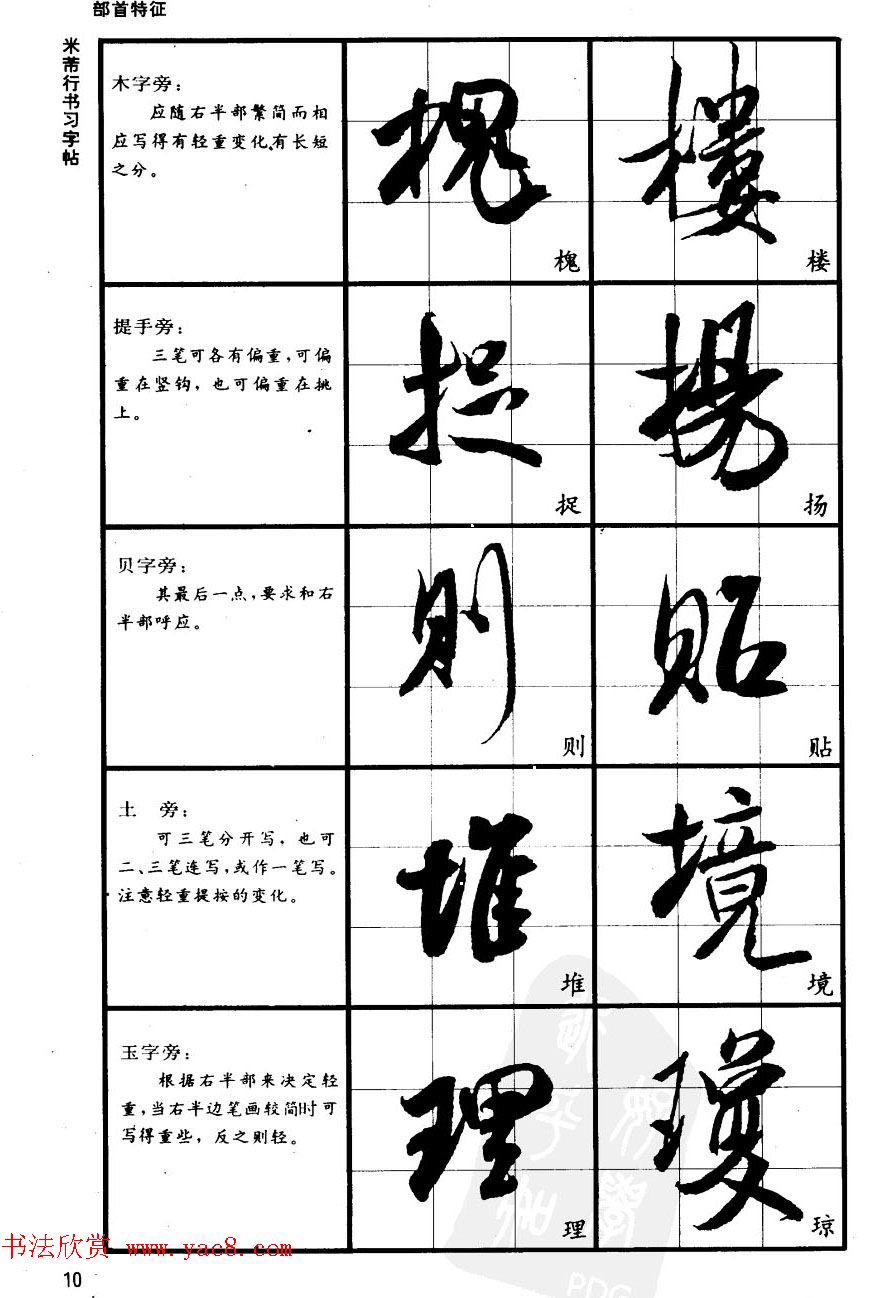 部首特征
米芾行书习字帖
木字旁：
应随右半部繁简而相
应写得有轻重变化，有长短
之分。
槐
樓
槐
楼
提手旁：
三笔可各有偏重，可偏
重在竖钩，也可偏重在挑
上。
捉
揚
捉
扬
贝字旁：
其最后一点，要求和右
半部呼应。
則
貼
则
贴
土 旁：
可三笔分开写，也可
二、三笔连写，或作一笔写。
注意轻重提按的变化。
堆
境
堆
境
玉字旁：
根据右半部来决定轻
重，当右半边笔画较简时可
写得重些，反之则轻。
理
瓊
理
琼
书法欣赏 www.yac8.com
10
PDG